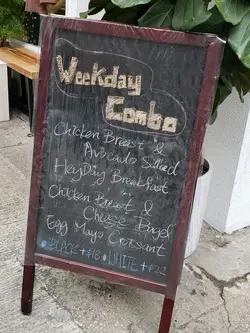 Weekday
Combo
Chicken Breast &
Avocado Salad
HeyDay Breakfast
Chicken Breast &
Cheese Bagel
Egg Mayo Croissant
BLACK + $16 WHITE + $22